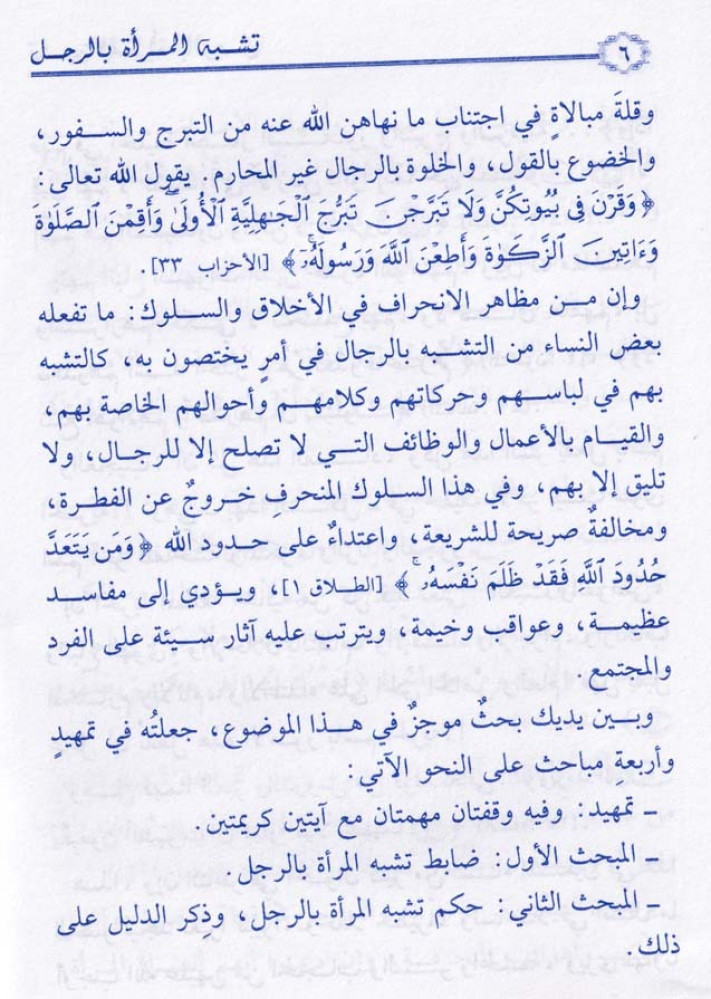 ٦ تشبه المرأة بالرجل
وقلةَ مبالاةٍ في اجتناب ما نهاهن الله عنه من التبرج والسفور،
والخضوع بالقول، والخلوة بالرجال غير المحارم. يقول الله تعالى:
﴿وَقَرْنَ فِى بُيُوتِكُنَّ وَلَا تَبَرَّجْنَ تَبَرُّجَ ٱلْجَـٰهِلِيَّةِ ٱلْأُولَىٰ وَأَقِمْنَ ٱلصَّلَوٰةَ
وَءَاتِينَ ٱلزَّكَوٰةَ وَأَطِعْنَ ٱللَّهَ وَرَسُولَهُۥٓ﴾ [الأحزاب ٣٣].
وإن من مظاهر الانحراف في الأخلاق والسلوك: ما تفعله
بعض النساء من التشبه بالرجال في أمرٍ يختصون به، كالتشبه
بهم في لباسهم وحركاتهم وكلامهم وأحوالهم الخاصة بهم،
والقيام بالأعمال والوظائف التي لا تصلح إلا للرجال، ولا
تليق إلا بهم، وفي هذا السلوك المنحرفِ خروجٌ عن الفطرة،
ومخالفةٌ صريحة للشريعة، واعتداءٌ على حدود الله ﴿وَمَن يَتَعَدَّ
حُدُودَ ٱللَّهِ فَقَدْ ظَلَمَ نَفْسَهُۥ﴾ [الطلاق ١]، ويؤدي إلى مفاسد
عظيمة، وعواقب وخيمة، ويترتب عليه آثار سيئة على الفرد
والمجتمع.
وبين يديك بحثٌ موجزٌ في هذا الموضوع، جعلتُه في تمهيدٍ
وأربعة مباحث على النحو الآتي:
– تمهيد: وفيه وقفتان مهمتان مع آيتين كريمتين.
– المبحث الأول: ضابط تشبه المرأة بالرجل.
– المبحث الثاني: حكم تشبه المرأة بالرجل، وذِكر الدليل على
ذلك.